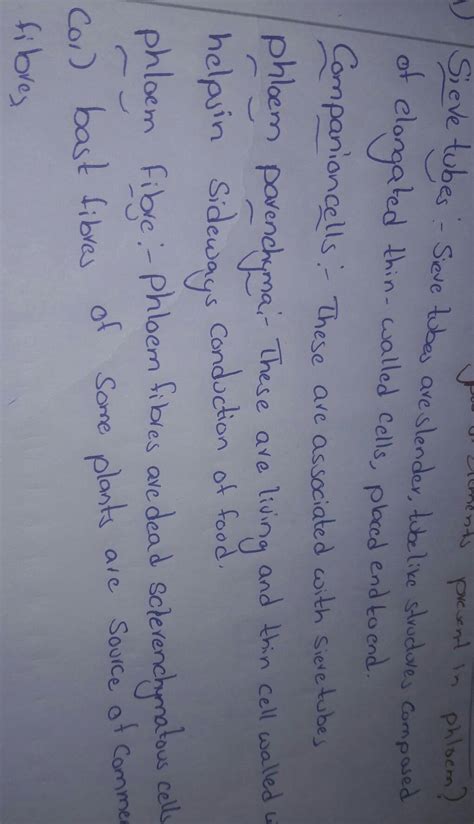 1) elements present in phloem?
Sieve tubes :- Sieve tubes are slender, tube like structures composed
of elongated thin-walled cells, placed end to end.
Companion cells :- These are associated with sieve tubes
phloem parenchyma :- These are living and thin cell walled
helps in sideways conduction of food.
phloem fibre :- Phloem fibres are dead sclerenchymatous cells
(or) bast fibres of some plants are source of
fibres